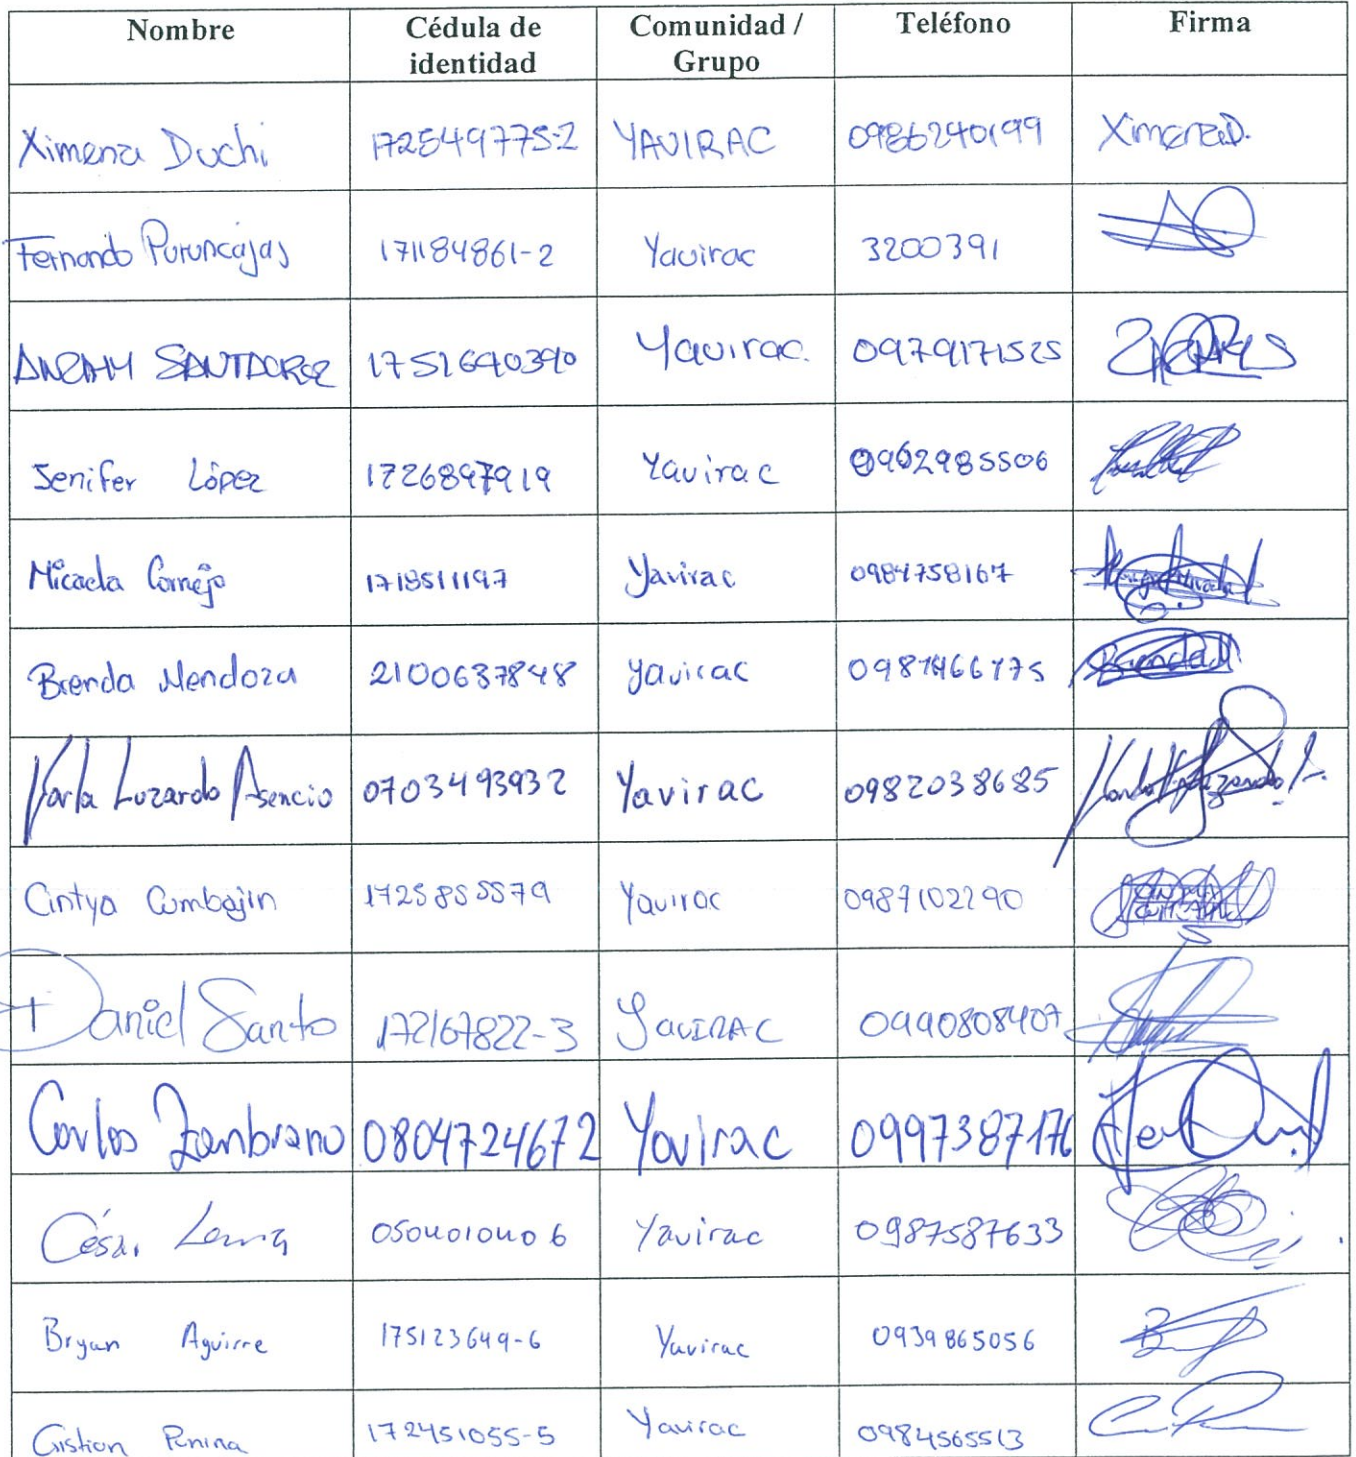 Nombre Cédula de identidad Comunidad / Grupo Teléfono Firma
Ximena Duchi 172549775-2 YAVIRAC 0986240199 XimenaD.
Fernando Puruncajas 171184861-2 Yavirac 3200391
1751640390 Yavirac. 0979171525
Jenifer López 1726897919 Yavirac 0962985506
Micaela Cornejo 1718511197 Yavirac 0984758167
Brenda Mendoza 2100637848 yavirac Brenda M
Karla Luzardo Asencio 0703493932 Yavirac 0982038685
Cintya Cumbajin 1725855579 Yavirac 0987102290
Daniel Santo 172167822-3 YAVIRAC 0990808407
Carlos Zambrano 0804724672 Yavirac 0997387176
César Lema 0504010406 Yavirac 0987587633
Bryan Aguirre 175123649-6 Yavirac 0939865056
Cristian 172451055-5 Yavirac 0984565513